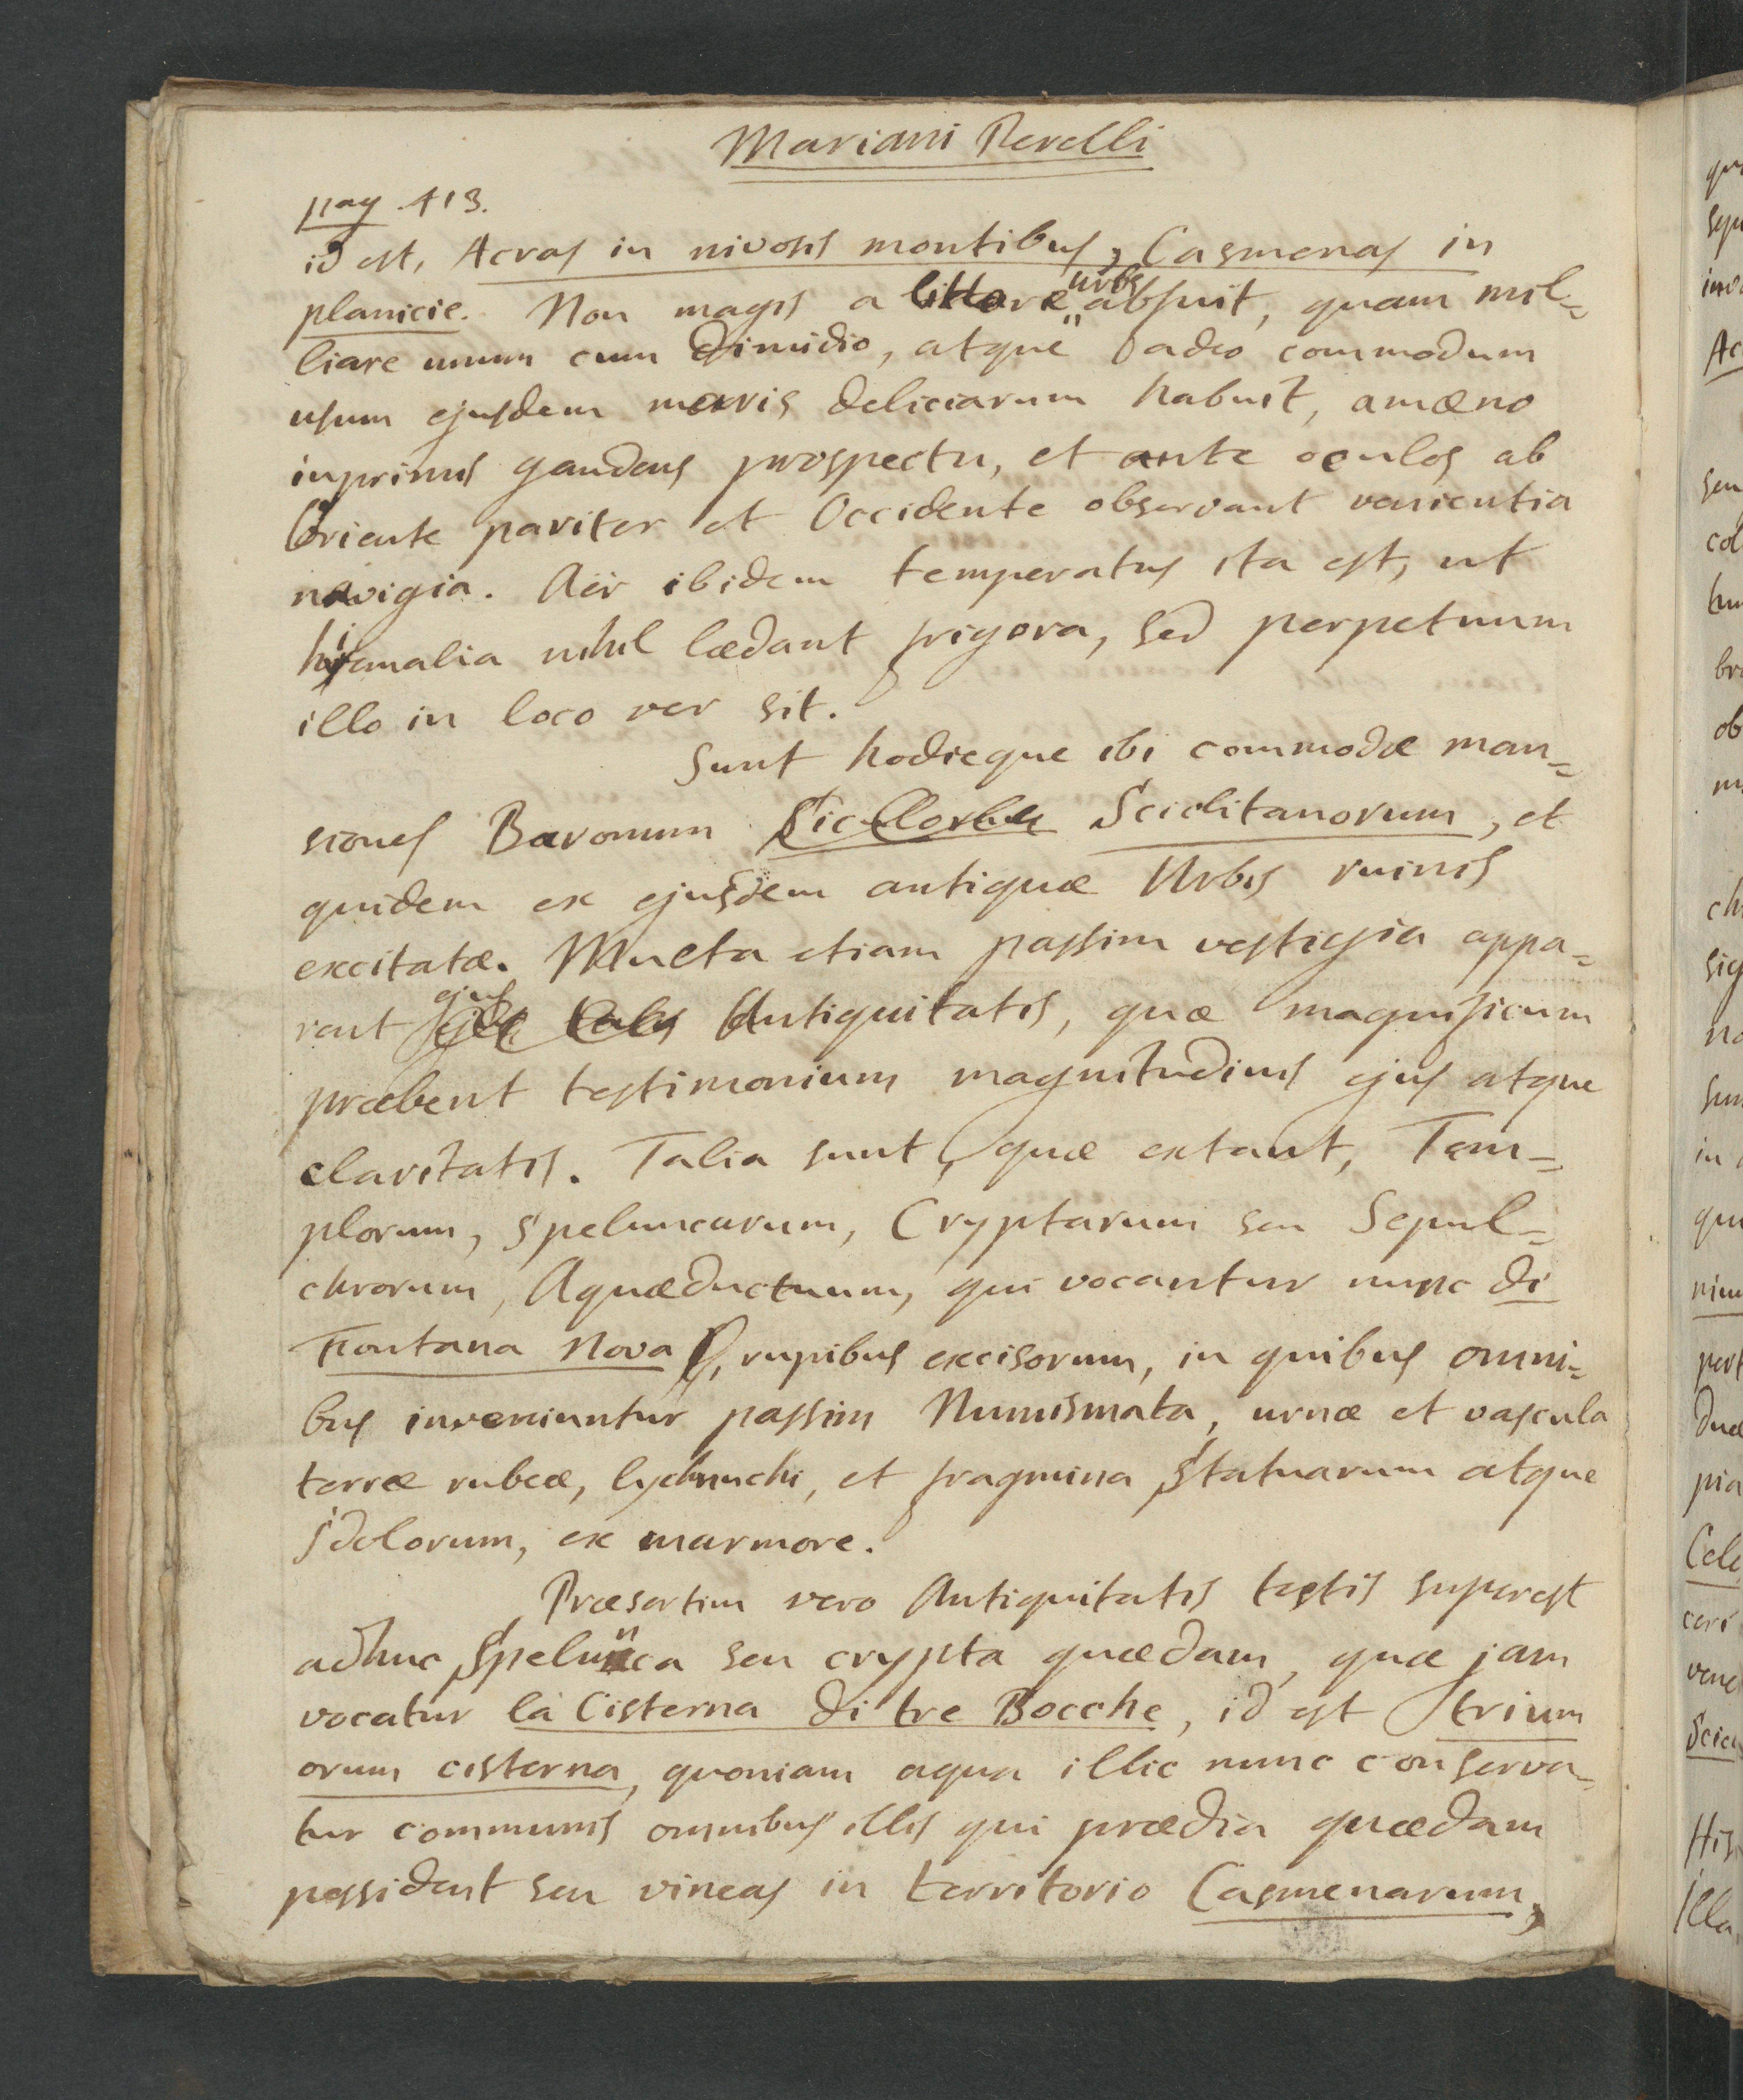 Mariani Perelli
pag. 413.
id est, Acras in nivosis montibus, Casmenas in
planicie. Non magis a littore urbs abfuit, quam mil=
liare unum cum dimidio, atque adeo commodum
usum ejusdem maris deliciarum habuit, amæno
inprimis gaudens prospectu, et ante oculos ab
Oriente pariter et Occidente observant venientia
navigia. Aër ibidem temperatus ita est, ut
hiemalia nihil lædant frigora, sed perpetuum
illo in loco ver sit.
Sunt hodieque ibi commodæ man=
siones Baronum Sciclitanorum, et
quidem ex ejusdem antiquæ Urbis ruinis
excitatæ. Multa etiam passim vestigia appa=
rent ejus Antiquitatis, quæ magnificum
præbent testimonium magnitudinis ejus atque
claritatis. Talia sunt, quæ extant, Tem=
plorum, Speluncarum, Cryptarum seu Sepul=
chrorum, Aquæductuum, qui vocantur nunc di
Fontana Nova, rupibus excisorum, in quibus omni=
bus inveniuntur passim Numismata, urnæ et vascula
terræ rubeæ, lychnuchi, et fragmina Statuarum atque
Idolorum, ex marmore.
Præsertim vero Antiquitatis testis superest
adhuc Spelunca seu crypta quædam, quæ jam
vocatur la Cisterna di tre Bocche, id est trium
orum cisterna, quoniam aqua illic nunc conserva=
tur communis omnibus illis qui prædia quædam
possident seu vineas in territorio Casmenarum,